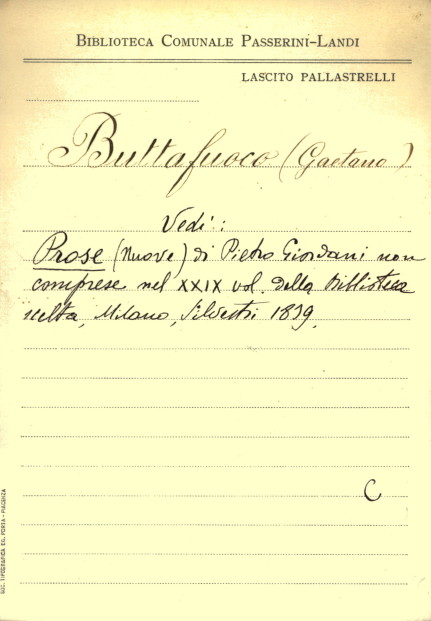 BIBLIOTECA COMUNALE PASSERINI-LANDI
LASCITO PALLASTRELLI
Buttafuoco (Gaetano)
Vedi:
Prose (Nuove) di Pietro Giordani non
comprese nel XXIX vol. della Biblioteca
scelta, Milano, Silvestri 1839.
C
SOC. TIPOGRAFICA ED. PORTA - PIACENZA